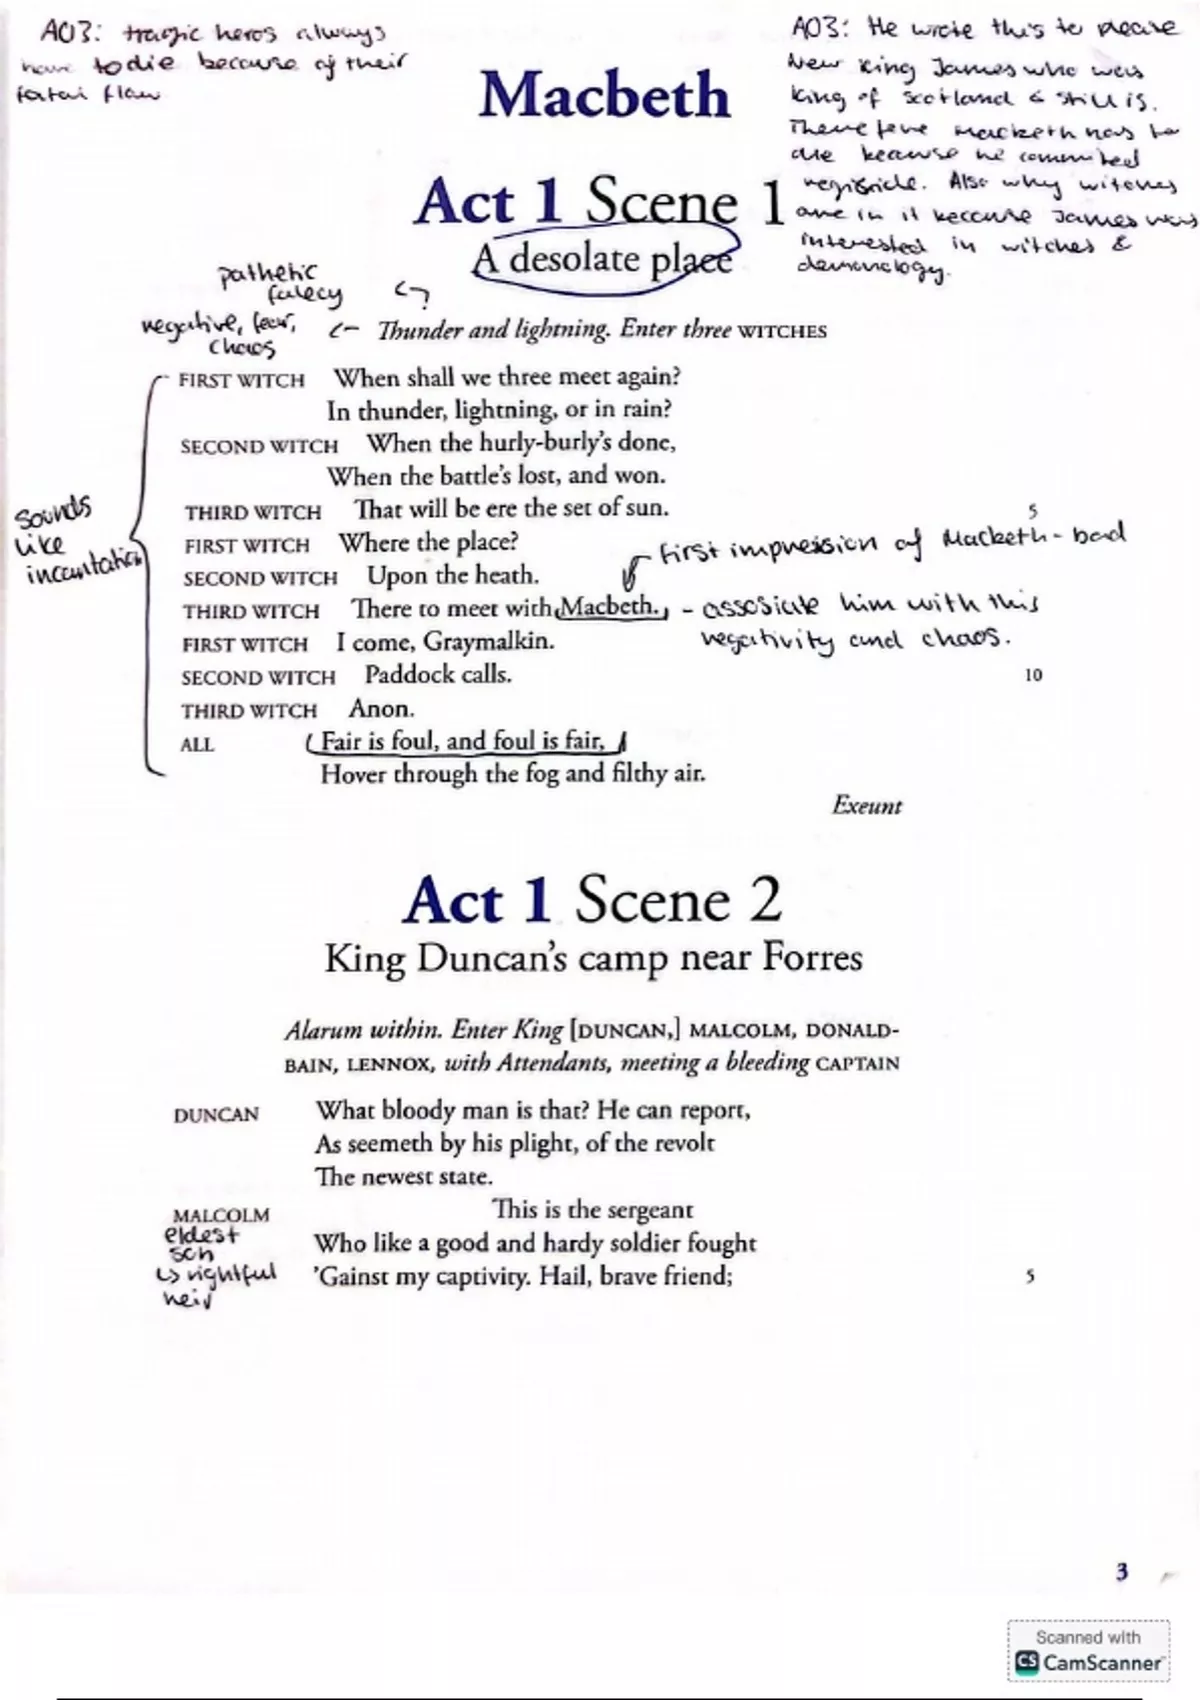 AO3: tragic heros always
have to die because of their
fatal flaw
AO3: He wrote this to please
New King James who was
king of Scotland & still is.
Therefore Macbeth has to
die because he committed
regicide. Also why witches
are in it because James was
interested in witches &
demonology.
Macbeth
Act 1 Scene 1
A desolate place
pathetic
falecy
negative, fear,
chaos
Thunder and lightning. Enter three WITCHES
FIRST WITCH When shall we three meet again?
In thunder, lightning, or in rain?
SECOND WITCH When the hurly-burly's done,
When the battle's lost, and won.
THIRD WITCH That will be ere the set of sun. 5
FIRST WITCH Where the place?
SECOND WITCH Upon the heath.
THIRD WITCH There to meet with Macbeth.
FIRST WITCH I come, Graymalkin.
SECOND WITCH Paddock calls. 10
THIRD WITCH Anon.
ALL Fair is foul, and foul is fair,
Hover through the fog and filthy air.
Exeunt
sounds
like
incantation
first impression of Macbeth - bad
- assosiate him with this
negativity and chaos.
Act 1 Scene 2
King Duncan's camp near Forres
Alarum within. Enter King [DUNCAN,] MALCOLM, DONALD-
BAIN, LENNOX, with Attendants, meeting a bleeding CAPTAIN
DUNCAN What bloody man is that? He can report,
As seemeth by his plight, of the revolt
The newest state.
MALCOLM This is the sergeant
Who like a good and hardy soldier fought
'Gainst my captivity. Hail, brave friend; 5
eldest
son
↳ rightful
heir
3
Scanned with
CS CamScanner